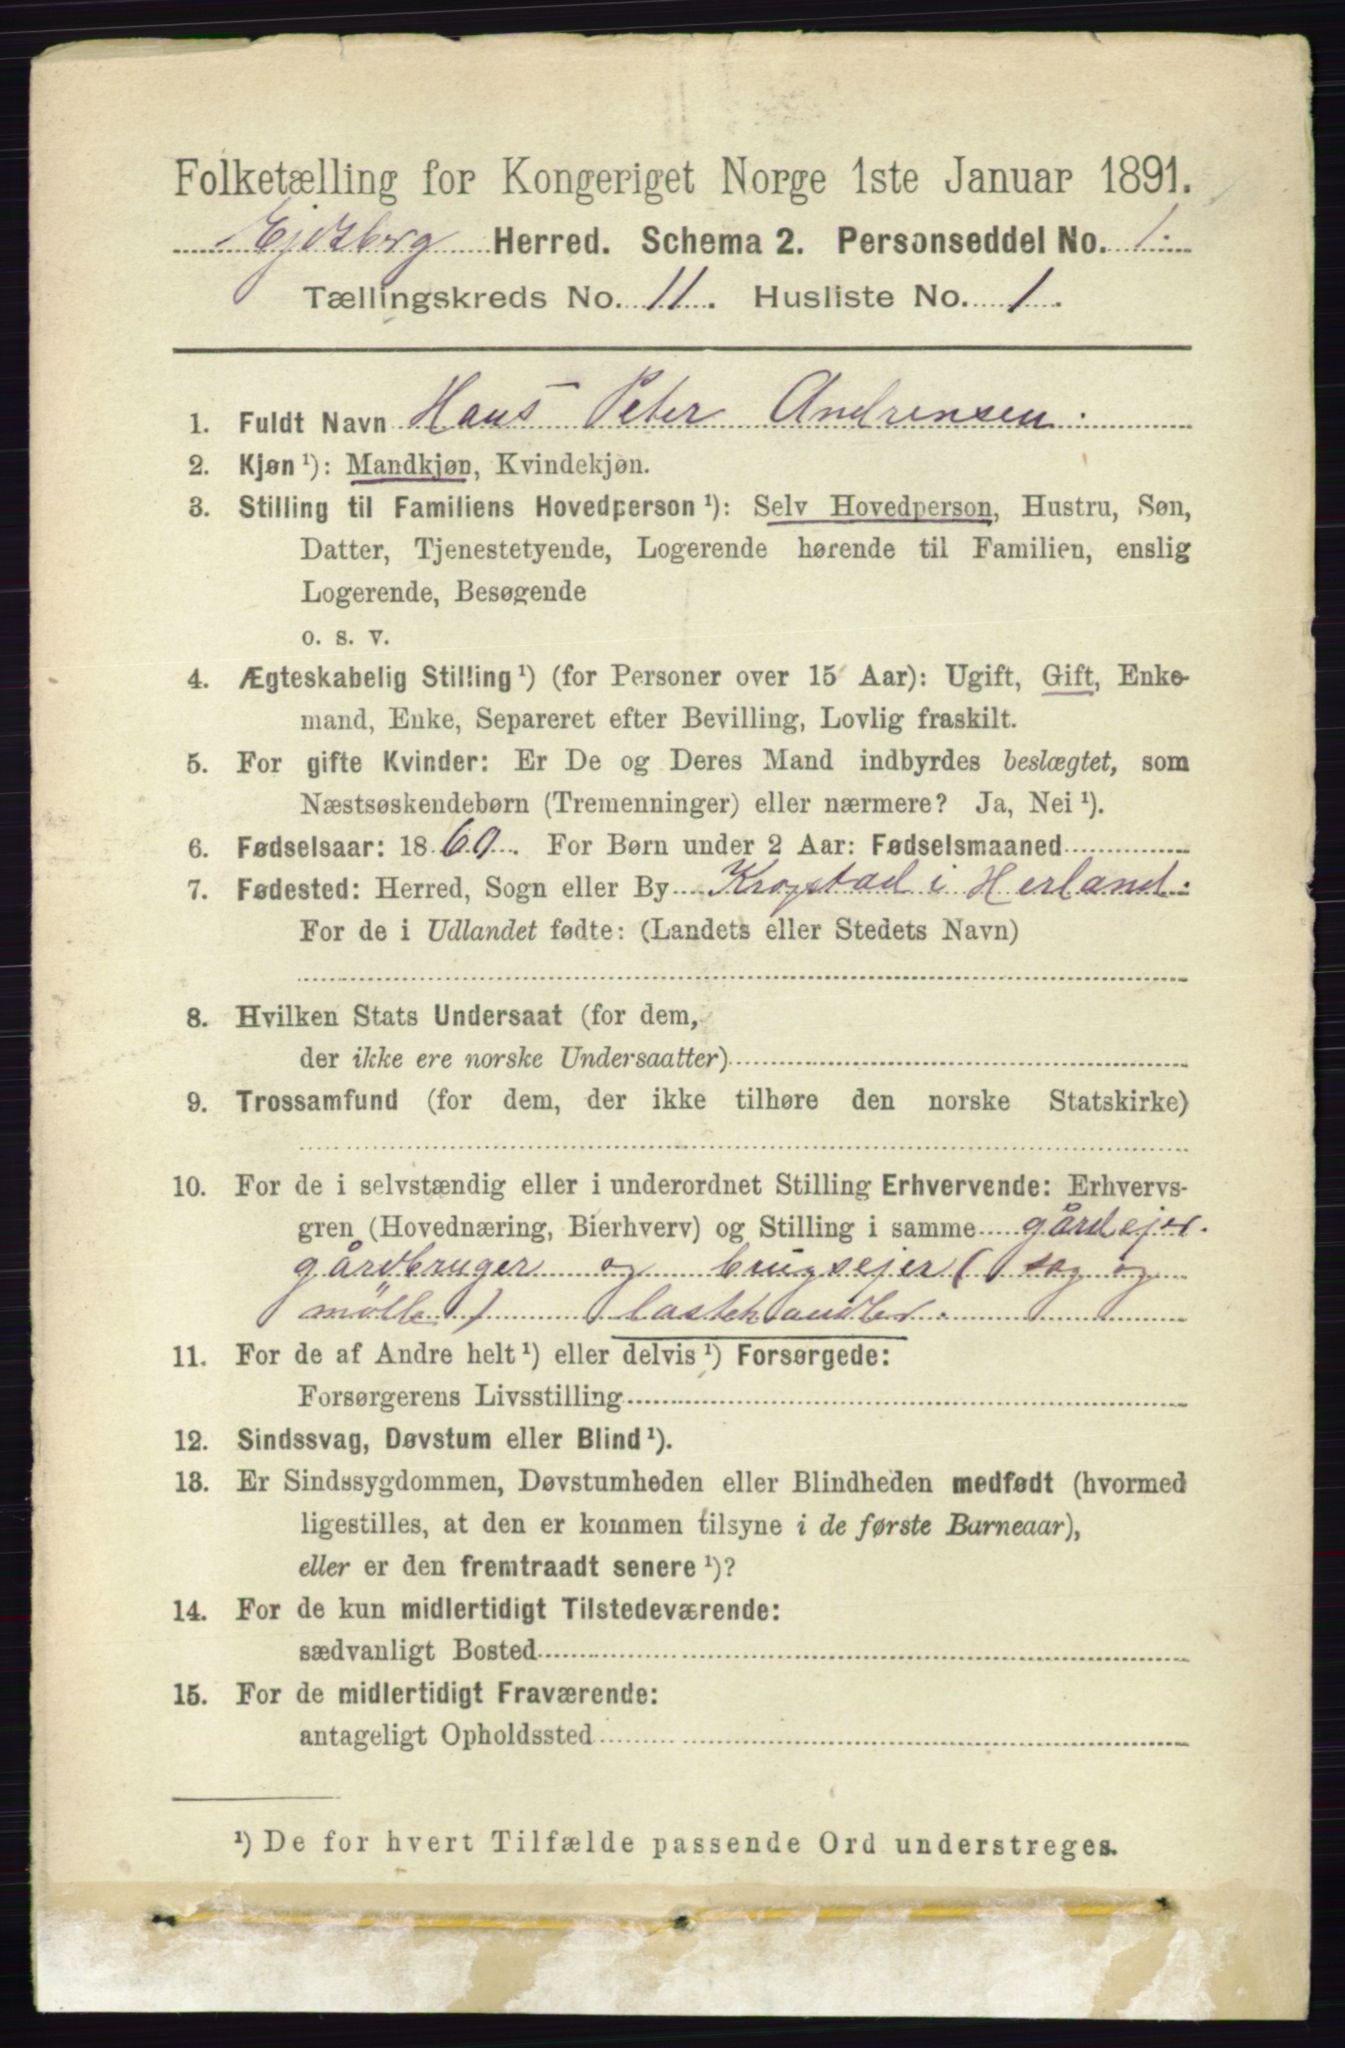 Folketælling for Kongeriget Norge 1ste Januar 1891.
Ejdsberg Herred. Schema 2. Personseddel No. 1.
Tællingskreds No. 11. Husliste No. 1.
1. Fuldt Navn Hans Peter Andrensen.
2. Kjøn ¹): Mandkjøn, Kvindekjøn.
3. Stilling til Familiens Hovedperson ¹): Selv Hovedperson, Hustru, Søn,
Datter, Tjenestetyende, Logerende hørende til Familien, enslig
Logerende, Besøgende
o. s. v.
4. Ægteskabelig Stilling ¹) (for Personer over 15 Aar): Ugift, Gift, Enke-
mand, Enke, Separeret efter Bevilling, Lovlig fraskilt.
5. For gifte Kvinder: Er De og Deres Mand indbyrdes beslægtet, som
Næstsøskendebørn (Tremenninger) eller nærmere? Ja, Nei ¹).
6. Fødselsaar: 1860. For Børn under 2 Aar: Fødselsmaaned
7. Fødested: Herred, Sogn eller By Krogstad i Herland.
For de i Udlandet fødte: (Landets eller Stedets Navn)
8. Hvilken Stats Undersaat (for dem,
der ikke ere norske Undersaatter)
9. Trossamfund (for dem, der ikke tilhøre den norske Statskirke)
10. For de i selvstændig eller i underordnet Stilling Erhvervende: Erhvervs-
gren (Hovednæring, Bierhverv) og Stilling i samme gårdejer.
gårdbruger og brugsejer (sag og
mølle) lasthandler.
11. For de af Andre helt ¹) eller delvis ¹) Forsørgede:
Forsørgerens Livsstilling
12. Sindssvag, Døvstum eller Blind ¹).
13. Er Sindssygdommen, Døvstumheden eller Blindheden medfødt (hvormed
ligestilles, at den er kommen tilsyne i de første Barneaar),
eller er den fremtraadt senere ¹)?
14. For de kun midlertidigt Tilstedeværende:
sædvanligt Bosted
15. For de midlertidigt Fraværende:
antageligt Opholdssted
¹) De for hvert Tilfælde passende Ord understreges.